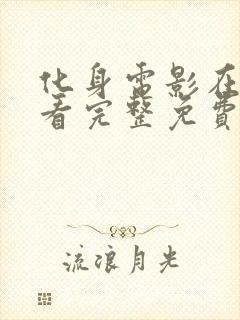 化身电影在
看完整免费
流浪月光